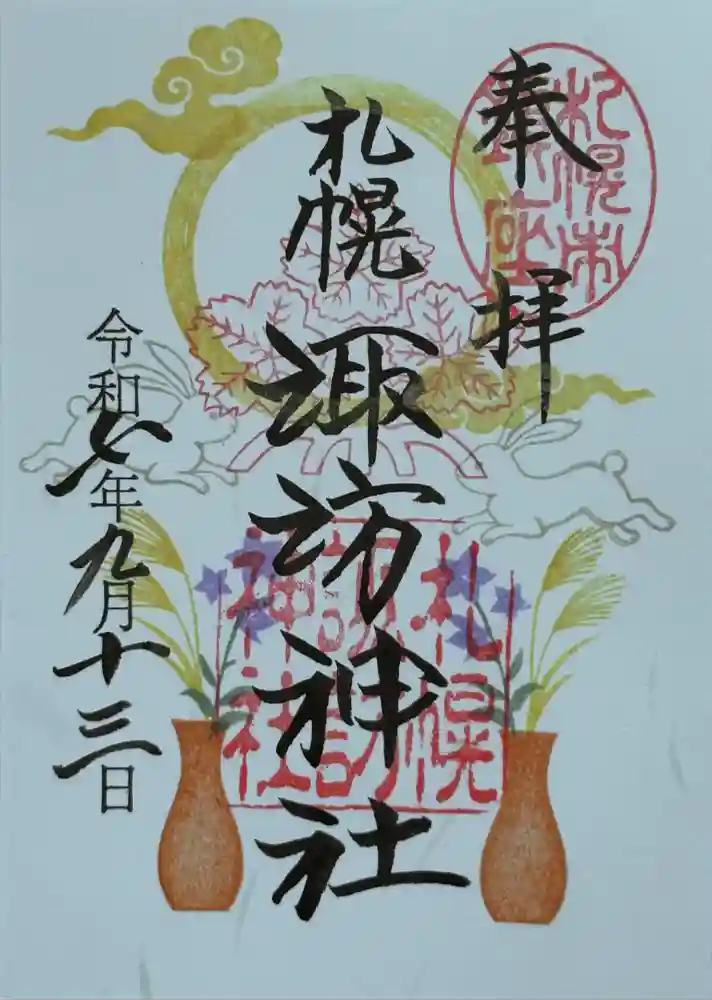 奉拝
札幌市
鎮座
札幌諏訪神社
札幌
諏訪
神社
令和六年九月十三日